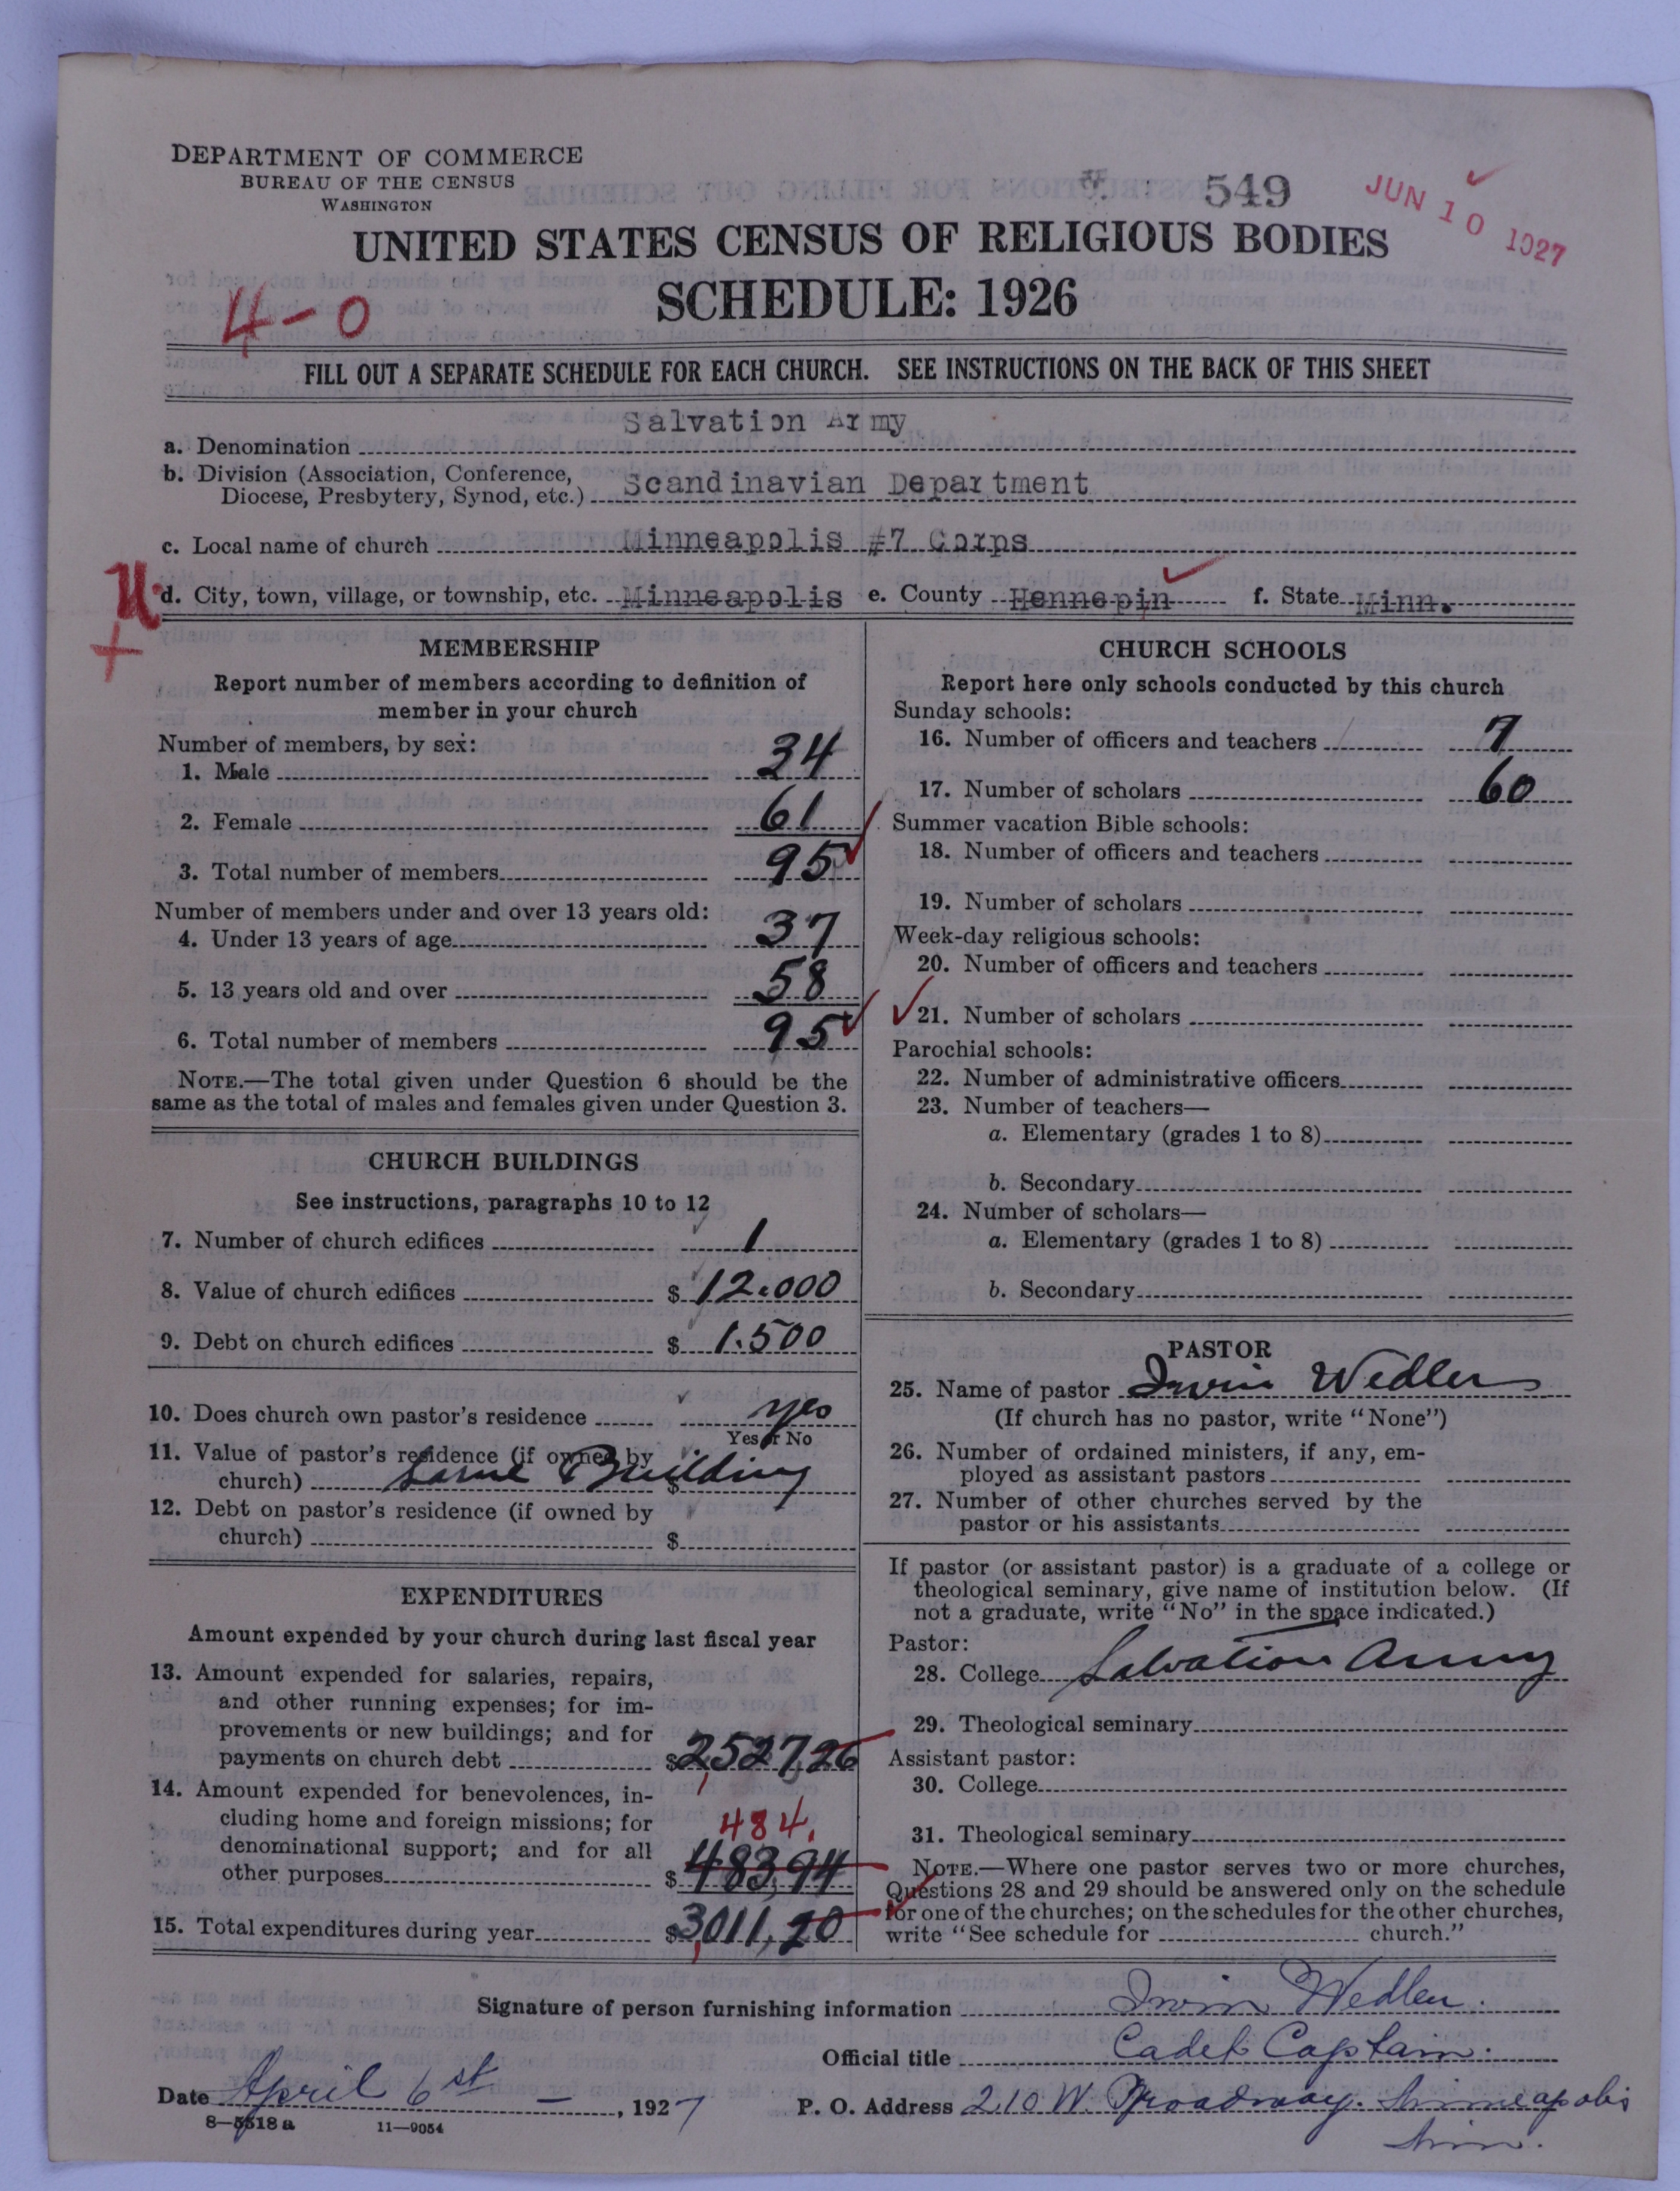 DEPARTMENT OF COMMERCE
BUREAU OF THE CENSUS
WASHINGTON
549
JUN 10 1927
UNITED STATES CENSUS OF RELIGIOUS BODIES
SCHEDULE: 1926
4-0
FILL OUT A SEPARATE SCHEDULE FOR EACH CHURCH. SEE INSTRUCTIONS ON THE BACK OF THIS SHEET
a. Denomination Salvation Army
b. Division (Association, Conference,
Diocese, Presbytery, Synod, etc.) Scandinavian Department
c. Local name of church Minneapolis #7 Corps
d. City, town, village, or township, etc. Minneapolis e. County Hennepin f. State Minn.
MEMBERSHIP
Report number of members according to definition of
member in your church
Number of members, by sex:
1. Male 34
2. Female 61
3. Total number of members 95
Number of members under and over 13 years old:
4. Under 13 years of age 37
5. 13 years old and over 58
6. Total number of members 95
NOTE.—The total given under Question 6 should be the
same as the total of males and females given under Question 3.
CHURCH BUILDINGS
See instructions, paragraphs 10 to 12
7. Number of church edifices 1
8. Value of church edifices $ 12.000
9. Debt on church edifices $ 1.500
10. Does church own pastor's residence yes
Yes or No
11. Value of pastor's residence (if owned by
church) Same Building $
12. Debt on pastor's residence (if owned by
church) $
EXPENDITURES
Amount expended by your church during last fiscal year
13. Amount expended for salaries, repairs,
and other running expenses; for im-
provements or new buildings; and for
payments on church debt $2,527,26
14. Amount expended for benevolences, in-
cluding home and foreign missions; for
denominational support; and for all
484.
other purposes $ 483,94
15. Total expenditures during year $3,011,20
CHURCH SCHOOLS
Report here only schools conducted by this church
Sunday schools:
16. Number of officers and teachers 7
17. Number of scholars 60
Summer vacation Bible schools:
18. Number of officers and teachers
19. Number of scholars
Week-day religious schools:
20. Number of officers and teachers
21. Number of scholars
Parochial schools:
22. Number of administrative officers
23. Number of teachers—
a. Elementary (grades 1 to 8)
b. Secondary
24. Number of scholars—
a. Elementary (grades 1 to 8)
b. Secondary
PASTOR
25. Name of pastor Irwin Wedler
(If church has no pastor, write "None")
26. Number of ordained ministers, if any, em-
ployed as assistant pastors
27. Number of other churches served by the
pastor or his assistants
If pastor (or assistant pastor) is a graduate of a college or
theological seminary, give name of institution below. (If
not a graduate, write "No" in the space indicated.)
Pastor:
28. College Salvation Army
29. Theological seminary
Assistant pastor:
30. College
31. Theological seminary
NOTE.—Where one pastor serves two or more churches,
Questions 28 and 29 should be answered only on the schedule
for one of the churches; on the schedules for the other churches,
write "See schedule for church."
Signature of person furnishing information Irwin Wedler.
Official title Cadet Captain.
Date April 6 st - , 1927 P. O. Address 210 W. Broadway. Minneapolis
Minn.
8—5518 a 11—9054